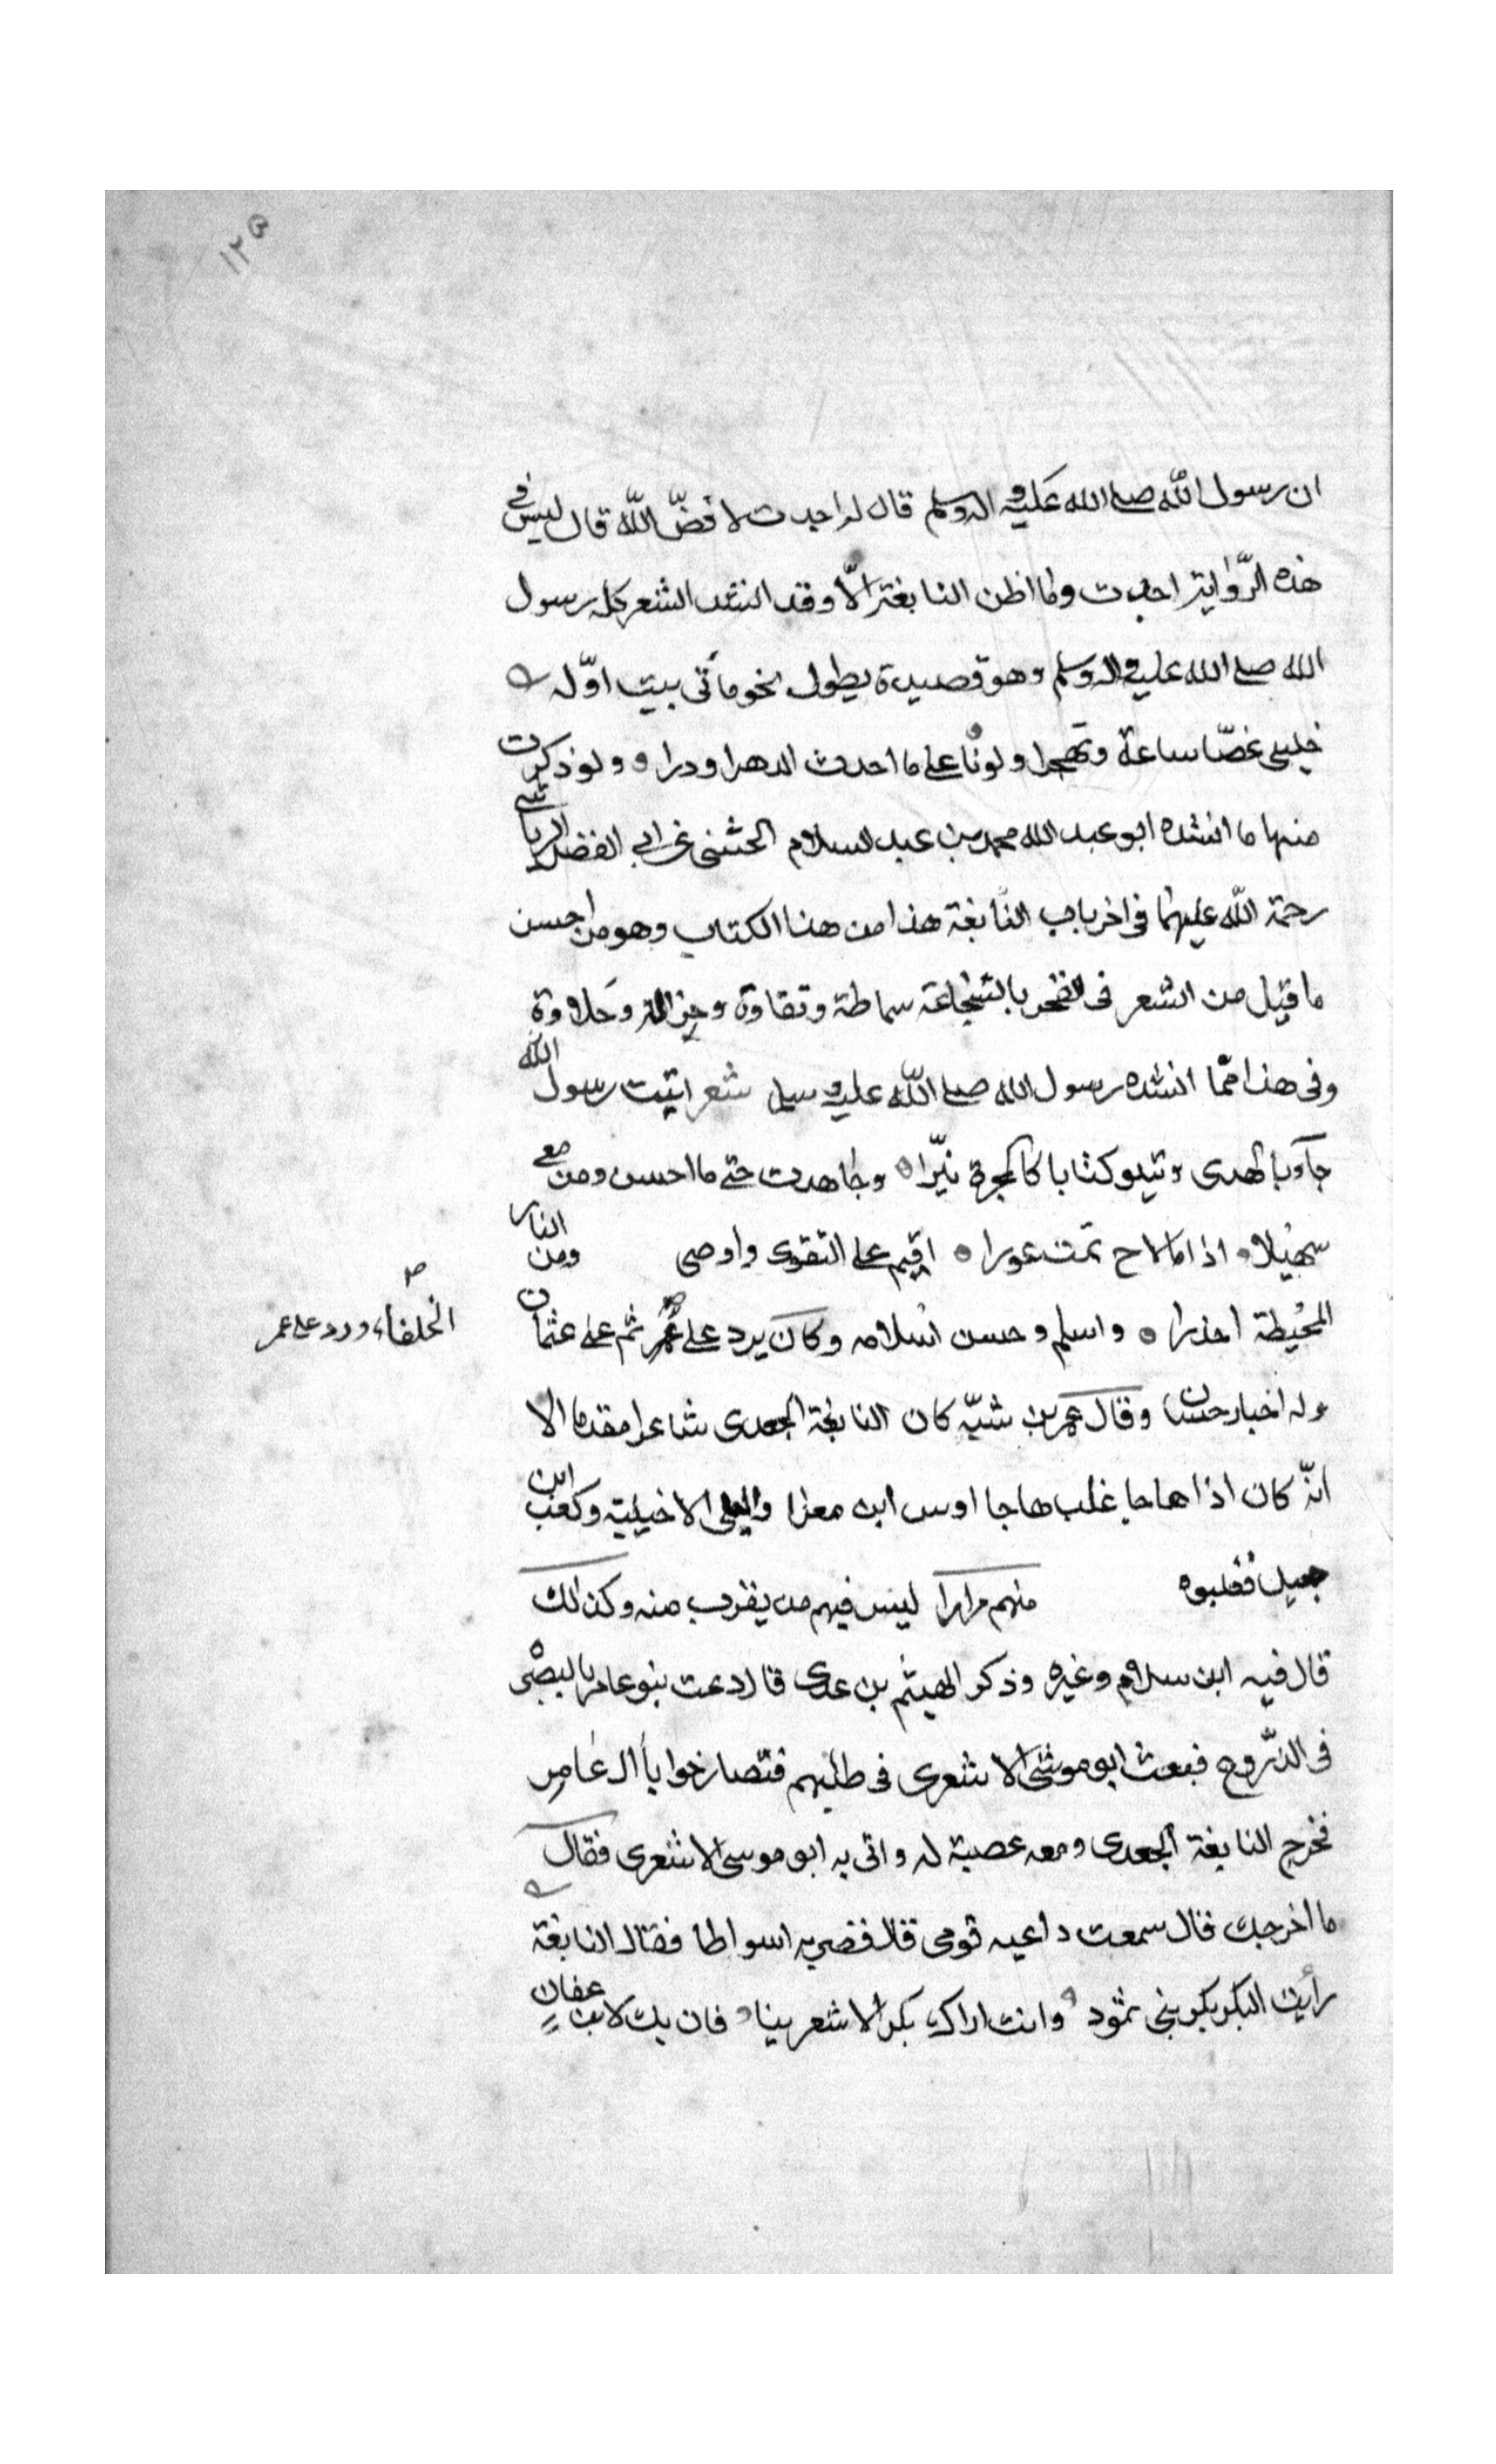 ١٢٥
ان رسول الله صلے الله عليه واله وسلم قال له اجدت لا فضّ الله قال ليس فى
هذه الرّواية اجدت وما اظن النابغة الّا وقد انشد الشعر كله رسول
الله صلے الله عليه واله وسلم وهو قصيدة يطول نحو مأتى بيت اوّله
خليلى غضّا ساعة وتهجرا ولوما على ما احدث الدهر او درا و ولو ذكرت
منها ما انشده ابو عبد الله محمد بن عبد السلام الخشنى عن ابى الفضل الرياشى
رحمة الله عليهما فى اخر باب النابغة هذا من هذا الكتاب وهو من احسن
ما قيل من الشعر فى الفخر بالشجاعة سماطة ونقاوة وجزالة وحلاوة
وفى هذا ممّا انشده رسول الله صلے الله عليه وسلم شعر اتيت رسول الله
جآء بالهدى ويتلو كتابا كالمجرة نيّرا وجاهدت حتے ما احس ومن معى
سهيلا اذا ما لاح تمت عورا اقيم على التقوى واوصى ومن النار
المحيطة احذرا واسلم وحسن اسلامه وكان يرد على عمر ثم على عثمان
الخلفاء ورد على عمر
وله اخبار حسان وقال عمر بن شبّه كان النابغة الجعدى شاعرا مقدما الا
انّه كان اذا هاجا غلب هاجا اوس ابن معزا وليلى الاخيلية وكعب ابن
جعيل فغلبوه منهم مرارا ليس فيهم من يقرب منه وكذلك
قال فيه ابن سلام وغيره وذكر الهيثم بن عدى قال دعت بنو عامر بالبصرة
فى الذروح فبعث ابو موسى الاشعرى فى طلبهم فتصارخوا يا ال عامر
فخرج النابغة الجعدى ومعه عصبة له واتى به ابو موسى الاشعرى فقال
ما اخرجك قال سمعت داعيه قومى قال فضربه اسواطا فقال النابغة
رأيت البكر بكر بنى ثمود وانت اراك بكر الاشعرينا فان يك لابن عفان